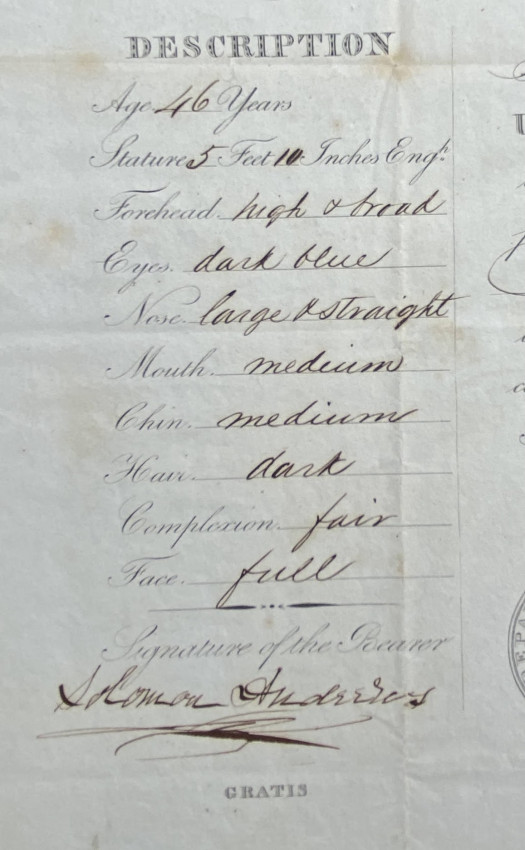 DESCRIPTION
Age 46 Years
Stature 5 Feet 10 Inches Engh.
Forehead. high & broad
Eyes. dark blue
Nose. large & straight
Mouth. medium
Chin. medium
Hair. dark
Complexion. fair
Face. full
Signature of the Bearer
Solomon Andrews
GRATIS